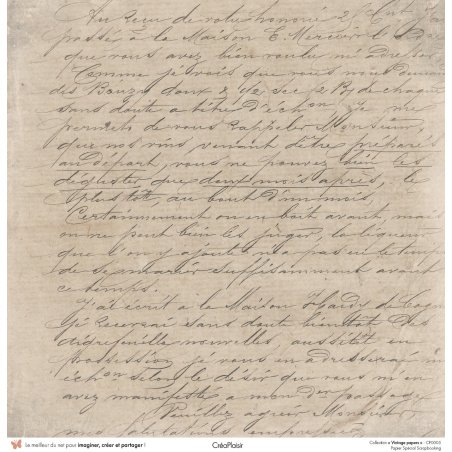 Au Reçu de votre honoré 2
passée à la Maison E. Mercier
que vous avez bien voulu m'adresser
Comme je vois que vous nous
des Bouzy doux & ½ sec 2 Bs de chaque
sans doute a titre d'échon, je me
permets de vous rappeler Monsieur,
que nos vins venant d'être préparés
au départ, vous ne pouvez bien les
déguster que deux mois après, le
plus tôt, au bout d'un mois,
Certainement on en boit avant, mais
on ne peut bien les juger, la liqueur
que l'on y ajoute n'a pas eu le temps
de se marier suffisamment avant
ce temps.
J'ai écrit a la Maison de
Je recevrai sans doute bientôt des
nouvelles, aussitôt en
possession je vous en adresserai
échon selon le désir que vous m'en
avez manifesté a mon passage
Veuillez agréer Monsieur,
mes salutations empressées
Le meilleur du net pour imaginer, créer et partager !
CréaPlaisir
Collection « Vintage papers » CP0003
Paper Special Scrapbooking